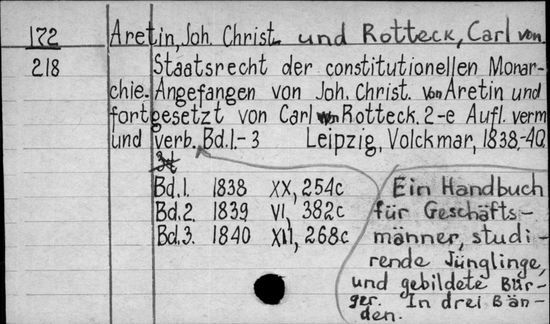 172 Aretin, Joh. Christ. und Rotteck, Carl von.
218 Staatsrecht der constitutionellen Monar-
chie. Angefangen von Joh. Christ. von Aretin und
fortgesetzt von Carl von Rotteck. 2-e Aufl. verm
und verb. Bd. 1.-3 Leipzig, Volckmar, 1838-40.
Bd. 1. 1838 XX, 254c
Bd. 2. 1839 VI, 382c
Bd. 3. 1840 XII, 268c
Ein Handbuch
für Geschäfts-
männer, studi-
rende Jünglinge,
und gebildete Bür-
ger. In drei Bän-
den.